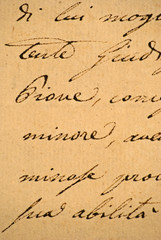 di lui mog
tente
Piove, con
minore, ave
minase pro
sua abilità